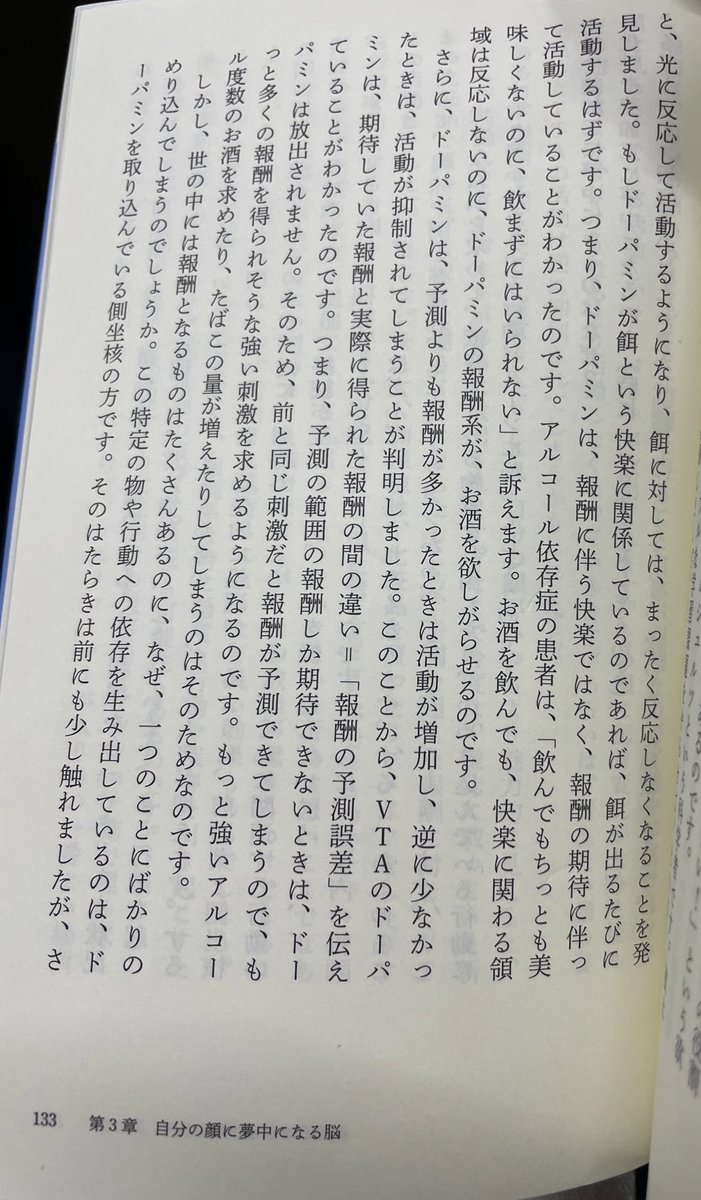 と、光に反応して活動するようになり、餌に対しては、まったく反応しなくなることを発
見しました。もしドーパミンが餌という快楽に関係しているのであれば、餌が出るたびに
活動するはずです。つまり、ドーパミンは、報酬に伴う快楽ではなく、報酬の期待に伴っ
て活動していることがわかったのです。アルコール依存症の患者は、「飲んでもちっとも美
味しくないのに、飲まずにはいられない」と訴えます。お酒を飲んでも、快楽に関わる領
域は反応しないのに、ドーパミンの報酬系が、お酒を欲しがらせるのです。
さらに、ドーパミンは、予測よりも報酬が多かったときは活動が増加し、逆に少なかっ
たときは、活動が抑制されてしまうことが判明しました。このことから、VTAのドーパ
ミンは、期待していた報酬と実際に得られた報酬の間の違い＝「報酬の予測誤差」を伝え
ていることがわかったのです。つまり、予測の範囲の報酬しか期待できないときは、ドー
パミンは放出されません。そのため、前と同じ刺激だと報酬が予測できてしまうので、も
っと多くの報酬を得られそうな強い刺激を求めるようになるのです。もっと強いアルコー
ル度数のお酒を求めたり、たばこの量が増えたりしてしまうのはそのためなのです。
しかし、世の中には報酬となるものはたくさんあるのに、なぜ、一つのことにばかりの
めり込んでしまうのでしょうか。この特定の物や行動への依存を生み出しているのは、ド
ーパミンを取り込んでいる側坐核の方です。そのはたらきは前にも少し触れましたが、さ
133 第3章 自分の顔に夢中になる脳